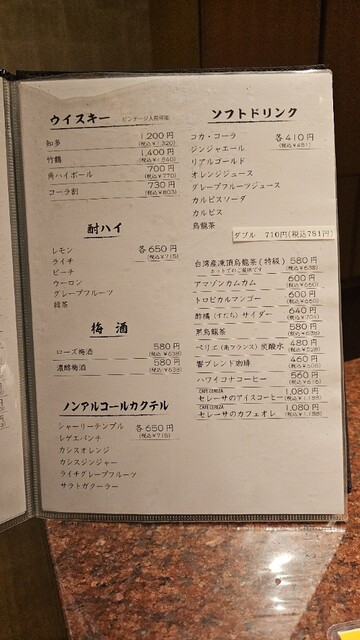 ウイスキー
知多 1,200円
(税込¥1,320)
竹鶴 1,400円
(税込¥1,540)
角ハイボール 700円
(税込¥770)
コーラ割 730円
(税込¥803)
酎ハイ
レモン 各650円
ライチ (税込¥715)
ピーチ
ウーロン
グレープフルーツ
緑茶
梅酒
ローズ梅酒 580円
(税込¥638)
濃醇梅酒 580円
(税込¥638)
ノンアルコールカクテル
シャーリーテンプル 各650円
レゲエパンチ (税込¥715)
カシスオレンジ
カシスジンジャー
ライチグレープフルーツ
サラトガクーラー
ソフトドリンク
コカ・コーラ 各410円
ジンジャエール (税込¥451)
リアルゴールド
オレンジジュース
グレープフルーツジュース
カルピスソーダ
カルピス
烏龍茶
ダブル 710円(税込781円)
台湾産凍頂烏龍茶(特級) 580円
ホットでのご提供です (税込¥638)
アマゾンカムカム 600円
(税込¥660)
トロピカルマンゴー 600円
(税込¥660)
酢橘(すだち)サイダー 640円
(税込¥704)
黒烏龍茶 580円
(税込¥638)
ペリエ(南フランス)炭酸水 480円
(税込¥528)
響ブレンド珈琲 460円
(税込¥506)
ハワイコナコーヒー 560円
(税込¥616)
CAFE CEREZA
セレーサのアイスコーヒー 1,080円
(税込¥1,188)
CAFE CEREZA
セレーサのカフェオレ 1,080円
(税込¥1,188)